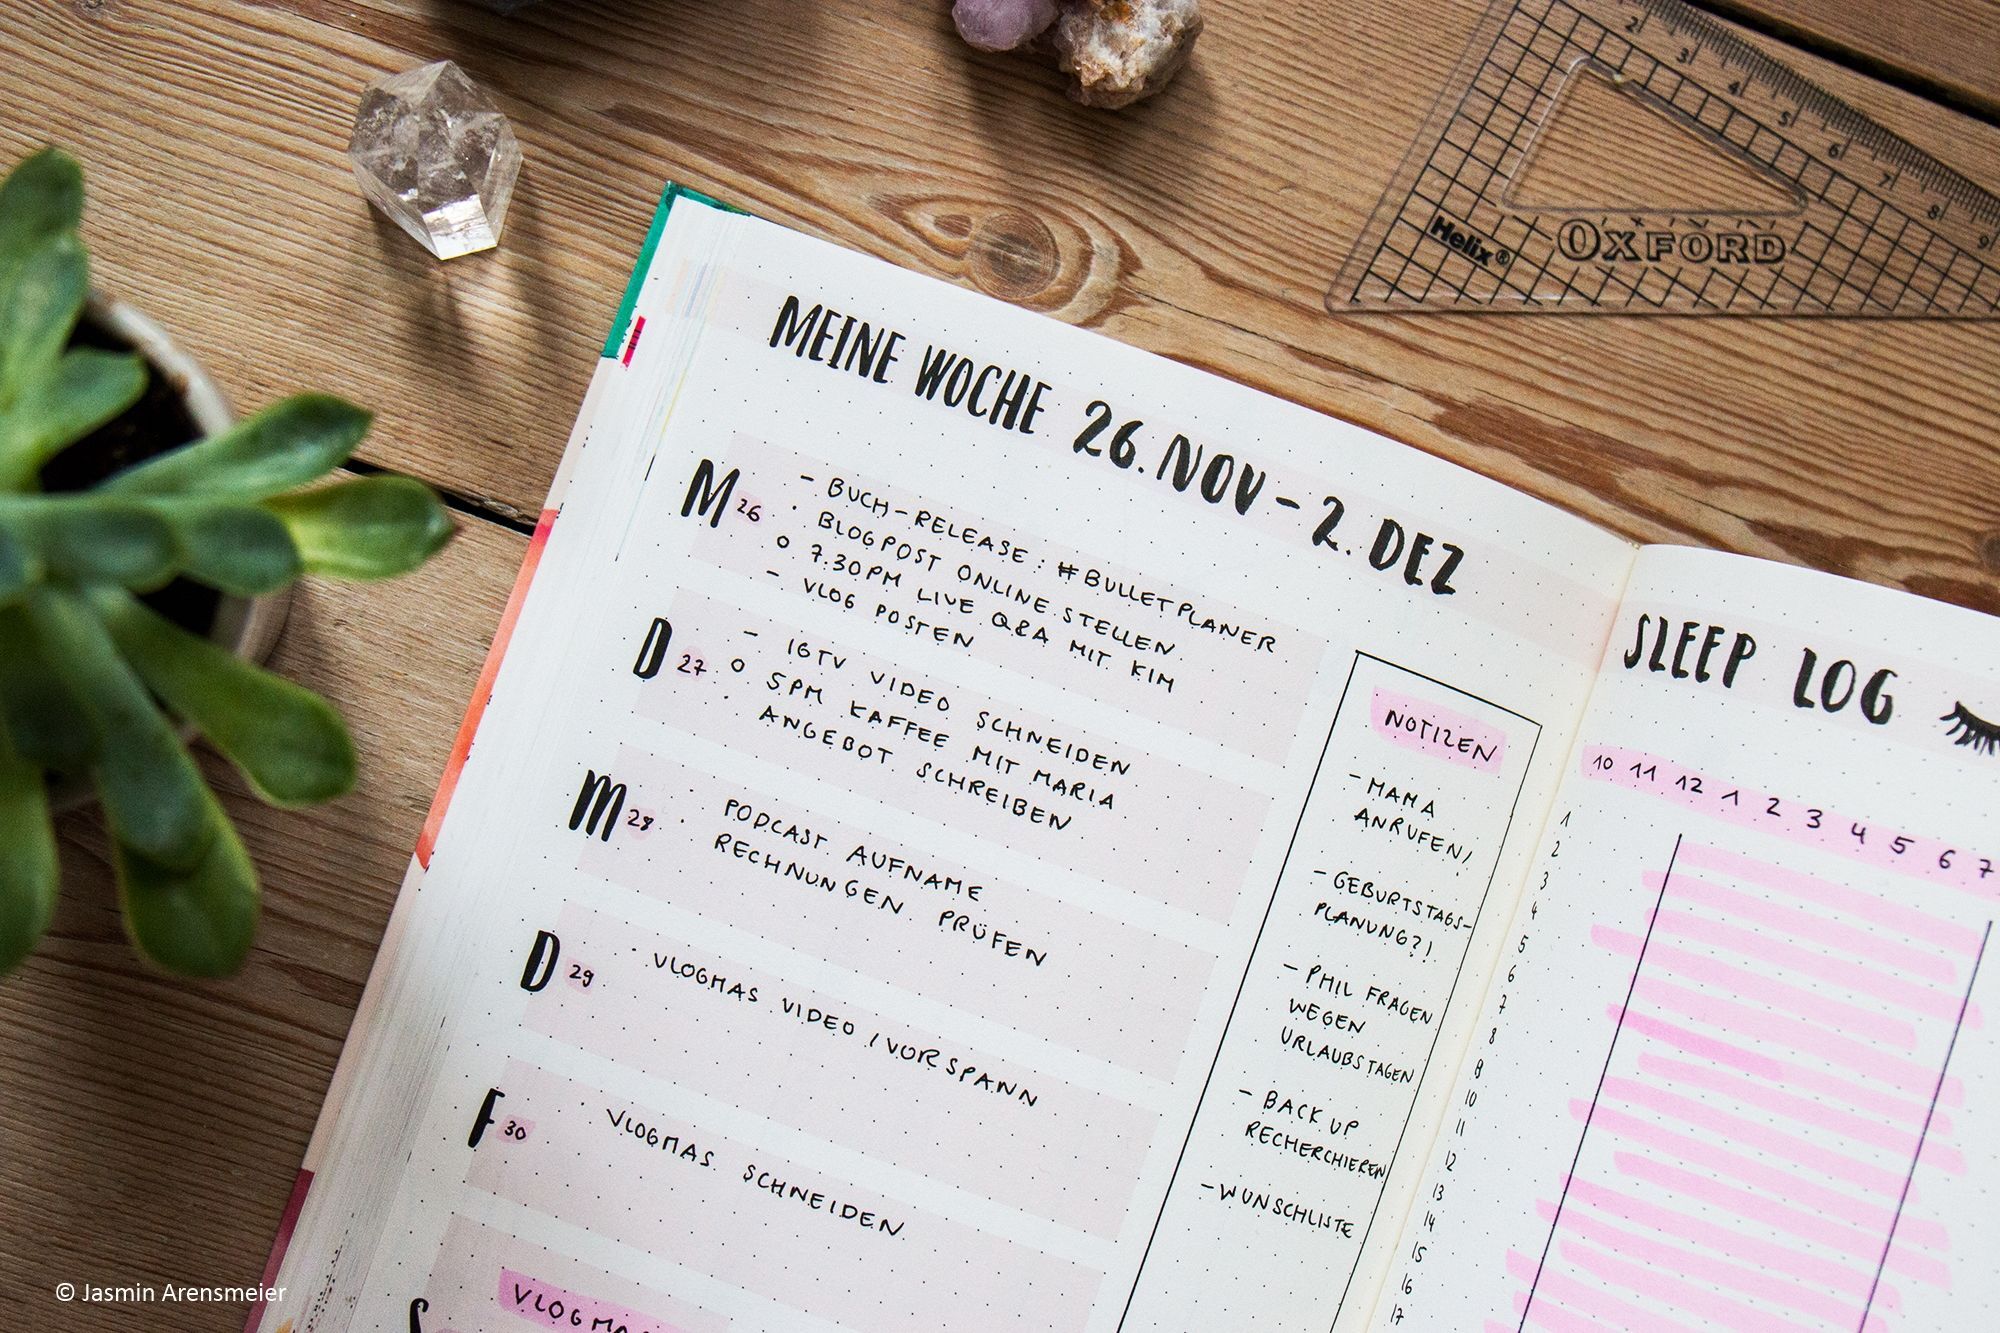 2 3 4 5 6 7 8 9
Helix®
OXFORD
MEINE WOCHE 26. NOV - 2. DEZ
M 26
- BUCH-RELEASE: #BULLETPLANER
· BLOGPOST ONLINE STELLEN
o 7.30PM LIVE Q&A MIT KIM
- VLOG POSTEN
D 27
- IGTV VIDEO SCHNEIDEN
o 5PM KAFFEE MIT MARIA
· ANGEBOT SCHREIBEN
M 28
· PODCAST AUFNAME
· RECHNUNGEN PRÜFEN
D 29
· VLOGMAS VIDEO / VORSPANN
F 30
· VLOGMAS SCHNEIDEN
S
VLOGMAS
NOTIZEN
- MAMA
ANRUFEN!
- GEBURTSTAGS-
PLANUNG?!
- PHIL FRAGEN
WEGEN
URLAUBSTAGEN
- BACK UP
RECHERCHIEREN
- WUNSCHLISTE
SLEEP LOG
10 11 12 1 2 3 4 5 6 7
1
2
3
4
5
6
7
8
9
10
11
12
13
14
15
16
17
© Jasmin Arensmeier